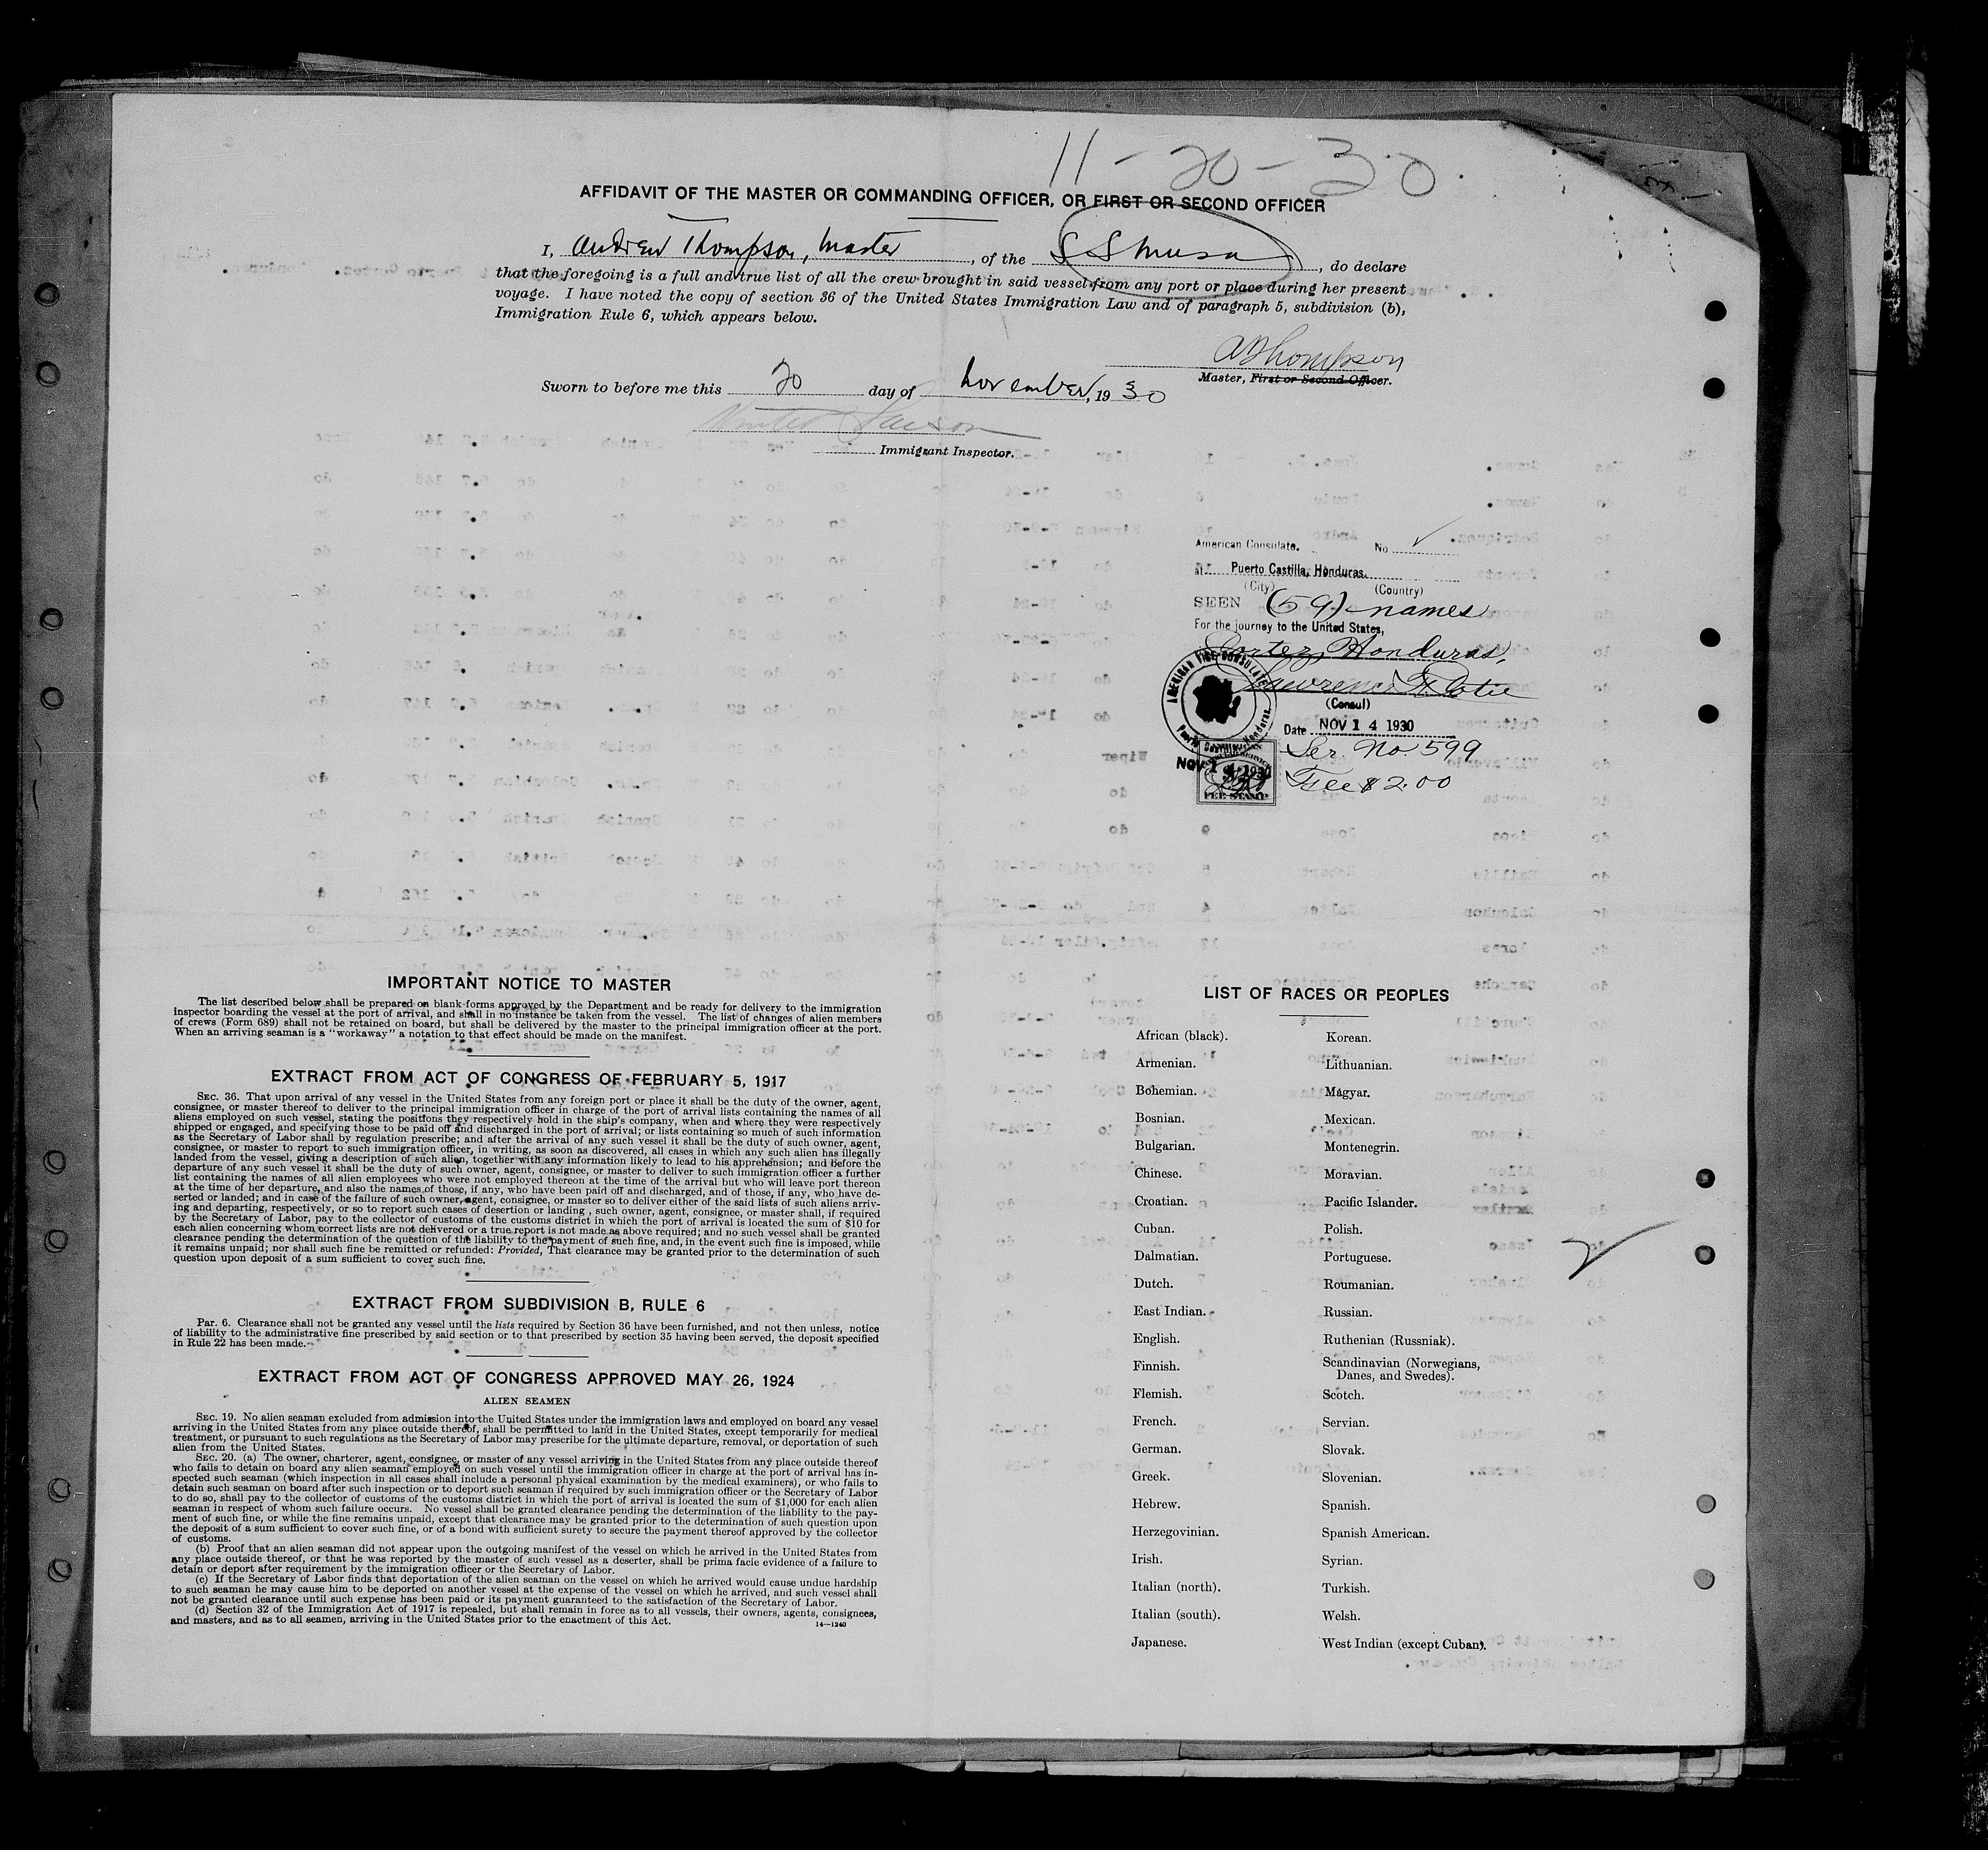 11-20-30
AFFIDAVIT OF THE MASTER OR COMMANDING OFFICER, OR FIRST OR SECOND OFFICER
I, Andrew Thompson, Master, of the SS Musa, do declare
that the foregoing is a full and true list of all the crew brought in said vessel from any port or place during her present
voyage. I have noted the copy of section 36 of the United States Immigration Law and of paragraph 5, subdivision (b),
Immigration Rule 6, which appears below.
A Thompson
Master, First or Second Officer.
Sworn to before me this 20 day of November, 1930
Immigrant Inspector.
American Consulate. No
at Puerto Castilla, Honduras.
(City) (Country)
SEEN (59) names
For the journey to the United States,
Cortez, Honduras,
(Consul)
Date NOV 14 1930
AMERICAN VICE CONSULATE
Puerto Castilla, Honduras.
Ser. No. 599
NOV 14 1930
FEE STAMP
Fee $2.00
IMPORTANT NOTICE TO MASTER
The list described below shall be prepared on blank forms approved by the Department and be ready for delivery to the immigration
inspector boarding the vessel at the port of arrival, and shall in no instance be taken from the vessel. The list of changes of alien members
of crews (Form 689) shall not be retained on board, but shall be delivered by the master to the principal immigration officer at the port.
When an arriving seaman is a "workaway" a notation to that effect should be made on the manifest.
EXTRACT FROM ACT OF CONGRESS OF FEBRUARY 5, 1917
SEC. 36. That upon arrival of any vessel in the United States from any foreign port or place it shall be the duty of the owner, agent,
consignee, or master thereof to deliver to the principal immigration officer in charge of the port of arrival lists containing the names of all
aliens employed on such vessel, stating the positions they respectively hold in the ship's company, when and where they were respectively
shipped or engaged, and specifying those to be paid off and discharged in the port of arrival; or lists containing so much of such information
as the Secretary of Labor shall by regulation prescribe; and after the arrival of any such vessel it shall be the duty of such owner, agent,
consignee, or master to report to such immigration officer, in writing, as soon as discovered, all cases in which any such alien has illegally
landed from the vessel, giving a description of such alien, together with any information likely to lead to his apprehension; and before the
departure of any such vessel it shall be the duty of such owner, agent, consignee, or master to deliver to such immigration officer a further
list containing the names of all alien employees who were not employed thereon at the time of the arrival but who will leave port thereon
at the time of her departure, and also the names of those, if any, who have been paid off and discharged, and of those, if any, who have de-
serted or landed; and in case of the failure of such owner, agent, consignee, or master so to deliver either of the said lists of such aliens arriv-
ing and departing, respectively, or so to report such cases of desertion or landing, such owner, agent, consignee, or master shall, if required
by the Secretary of Labor, pay to the collector of customs of the customs district in which the port of arrival is located the sum of $10 for
each alien concerning whom correct lists are not delivered or a true report is not made as above required; and no such vessel shall be granted
clearance pending the determination of the question of the liability to the payment of such fine, and, in the event such fine is imposed, while
it remains unpaid; nor shall such fine be remitted or refunded: Provided, That clearance may be granted prior to the determination of such
question upon deposit of a sum sufficient to cover such fine.
EXTRACT FROM SUBDIVISION B, RULE 6
Par. 6. Clearance shall not be granted any vessel until the lists required by Section 36 have been furnished, and not then unless, notice
of liability to the administrative fine prescribed by said section or to that prescribed by section 35 having been served, the deposit specified
in Rule 22 has been made.
EXTRACT FROM ACT OF CONGRESS APPROVED MAY 26, 1924
ALIEN SEAMEN
SEC. 19. No alien seaman excluded from admission into the United States under the immigration laws and employed on board any vessel
arriving in the United States from any place outside thereof, shall be permitted to land in the United States, except temporarily for medical
treatment, or pursuant to such regulations as the Secretary of Labor may prescribe for the ultimate departure, removal, or deportation of such
alien from the United States.
SEC. 20. (a) The owner, charterer, agent, consignee, or master of any vessel arriving in the United States from any place outside thereof
who fails to detain on board any alien seaman employed on such vessel until the immigration officer in charge at the port of arrival has in-
spected such seaman (which inspection in all cases shall include a personal physical examination by the medical examiners), or who fails to
detain such seaman on board after such inspection or to deport such seaman if required by such immigration officer or the Secretary of Labor
to do so, shall pay to the collector of customs of the customs district in which the port of arrival is located the sum of $1,000 for each alien
seaman in respect of whom such failure occurs. No vessel shall be granted clearance pending the determination of the liability to the pay-
ment of such fine, or while the fine remains unpaid, except that clearance may be granted prior to the determination of such question upon
the deposit of a sum sufficient to cover such fine, or of a bond with sufficient surety to secure the payment thereof approved by the collector
of customs.
(b) Proof that an alien seaman did not appear upon the outgoing manifest of the vessel on which he arrived in the United States from
any place outside thereof, or that he was reported by the master of such vessel as a deserter, shall be prima facie evidence of a failure to
detain or deport after requirement by the immigration officer or the Secretary of Labor.
(c) If the Secretary of Labor finds that deportation of the alien seaman on the vessel on which he arrived would cause undue hardship
to such seaman he may cause him to be deported on another vessel at the expense of the vessel on which he arrived, and such vessel shall
not be granted clearance until such expense has been paid or its payment guaranteed to the satisfaction of the Secretary of Labor.
(d) Section 32 of the Immigration Act of 1917 is repealed, but shall remain in force as to all vessels, their owners, agents, consignees,
and masters, and as to all seamen, arriving in the United States prior to the enactment of this Act.
14—1240
LIST OF RACES OR PEOPLES
African (black). Korean.
Armenian. Lithuanian.
Bohemian. Magyar.
Bosnian. Mexican.
Bulgarian. Montenegrin.
Chinese. Moravian.
Croatian. Pacific Islander.
Cuban. Polish.
Dalmatian. Portuguese.
Dutch. Roumanian.
East Indian. Russian.
English. Ruthenian (Russniak).
Finnish. Scandinavian (Norwegians,
Danes, and Swedes).
Flemish. Scotch.
French. Servian.
German. Slovak.
Greek. Slovenian.
Hebrew. Spanish.
Herzegovinian. Spanish American.
Irish. Syrian.
Italian (north). Turkish.
Italian (south). Welsh.
Japanese. West Indian (except Cuban).